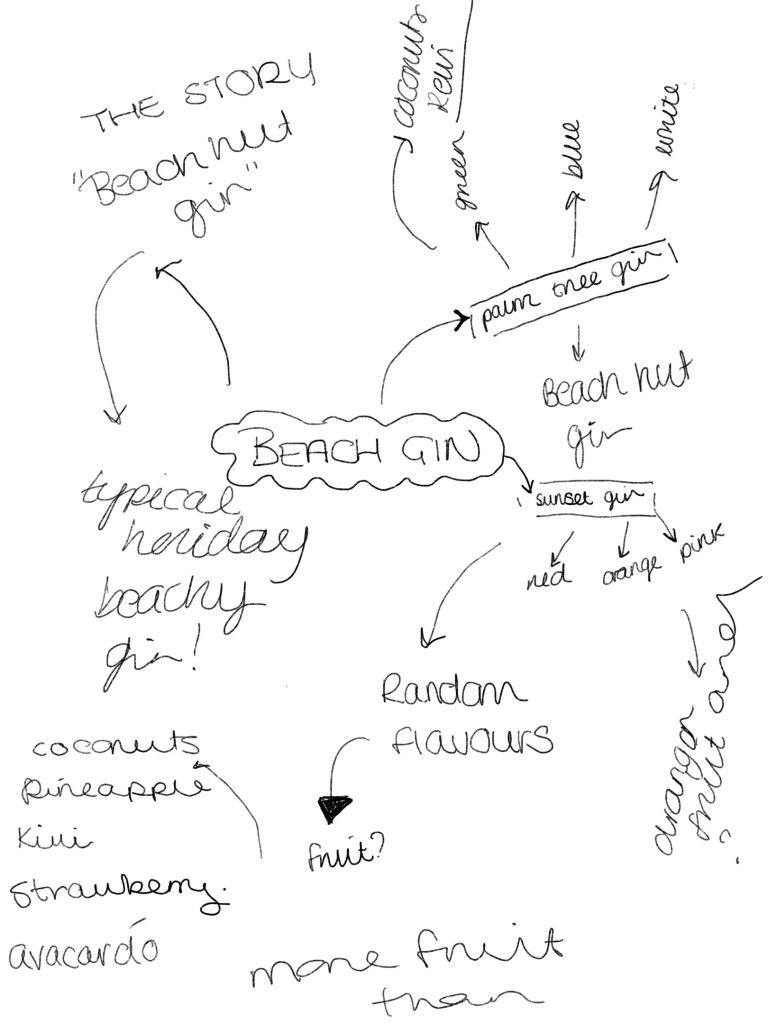 THE STORY
"Beach hut
gin"
coconuts
kewi
green
blue
white
palm tree gin
Beach hut
gin
BEACH GIN
sunset gin
red
orange
pink
typical
holiday
beachy
gin!
Random
flavours
fruit?
dragon
fruit
coconuts
pineapple
kiwi
strawberry.
avacardo
more fruit
than